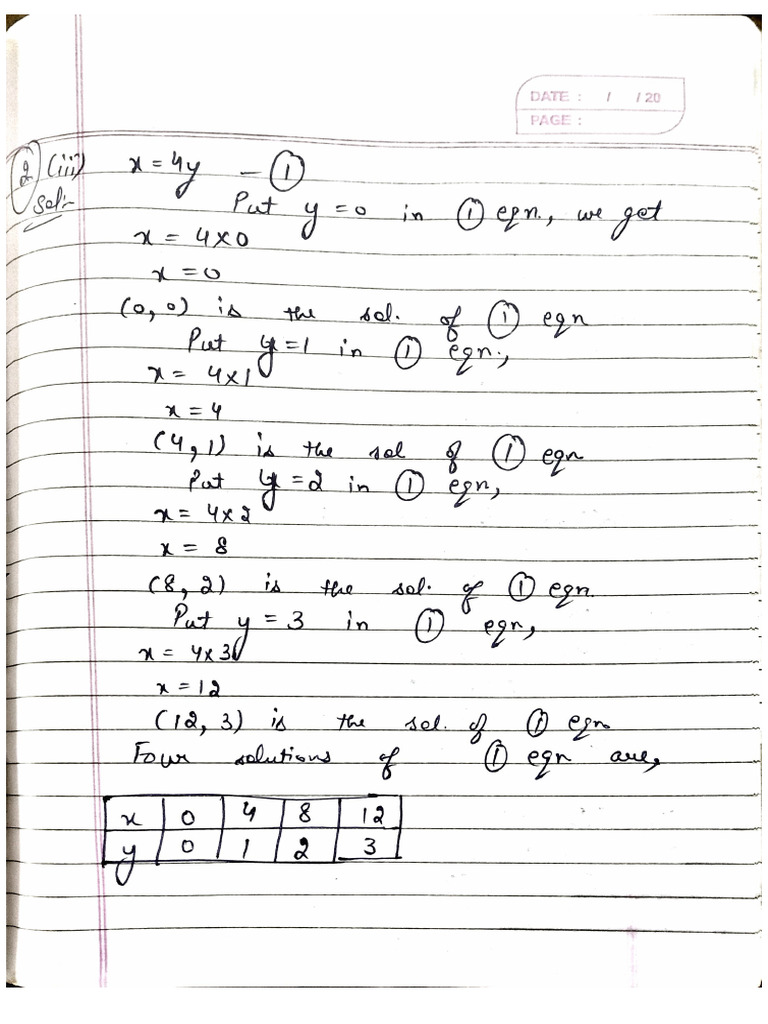 DATE : / / 20
PAGE :
2 (iii) x = 4y — ①
Sol:- Put y = 0 in ① eqn., we get
x = 4×0
x = 0
(0, 0) is the sol. of ① eqn
Put y = 1 in ① eqn.,
x = 4×1
x = 4
(4, 1) is the sol of ① eqn
Put y = 2 in ① eqn,
x = 4×2
x = 8
(8, 2) is the sol. of ① eqn.
Put y = 3 in ① eqn,
x = 4×3
x = 12
(12, 3) is the sol. of ① eqn
Four solutions of ① eqn are,
x 0 4 8 12
y 0 1 2 3